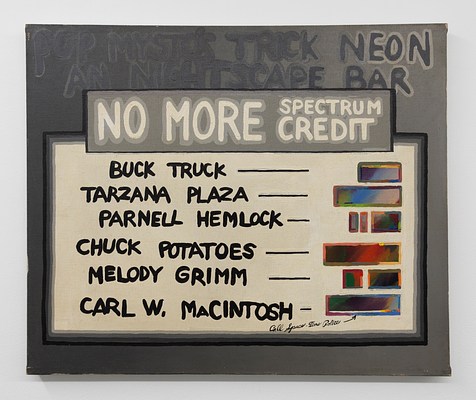 POP MYSTIC TRICK NEON
AN NIGHTSCAPE BAR
NO MORE SPECTRUM CREDIT
BUCK TRUCK
TARZANA PLAZA
PARNELL HEMLOCK
CHUCK POTATOES
MELODY GRIMM
CARL W. MACINTOSH
Call Space-Time Police